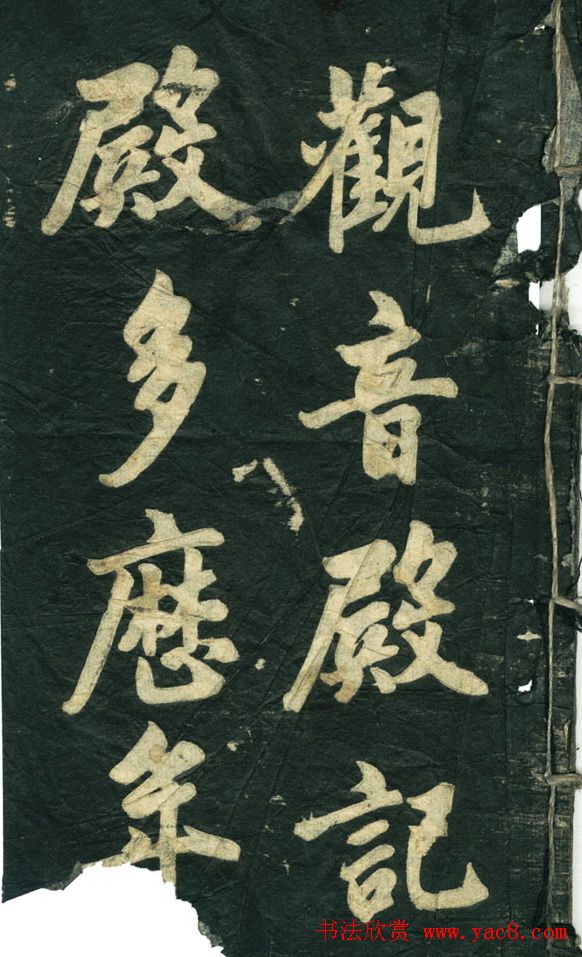 觀音殿記
殿多歷年
书法欣赏 www.yac8.com